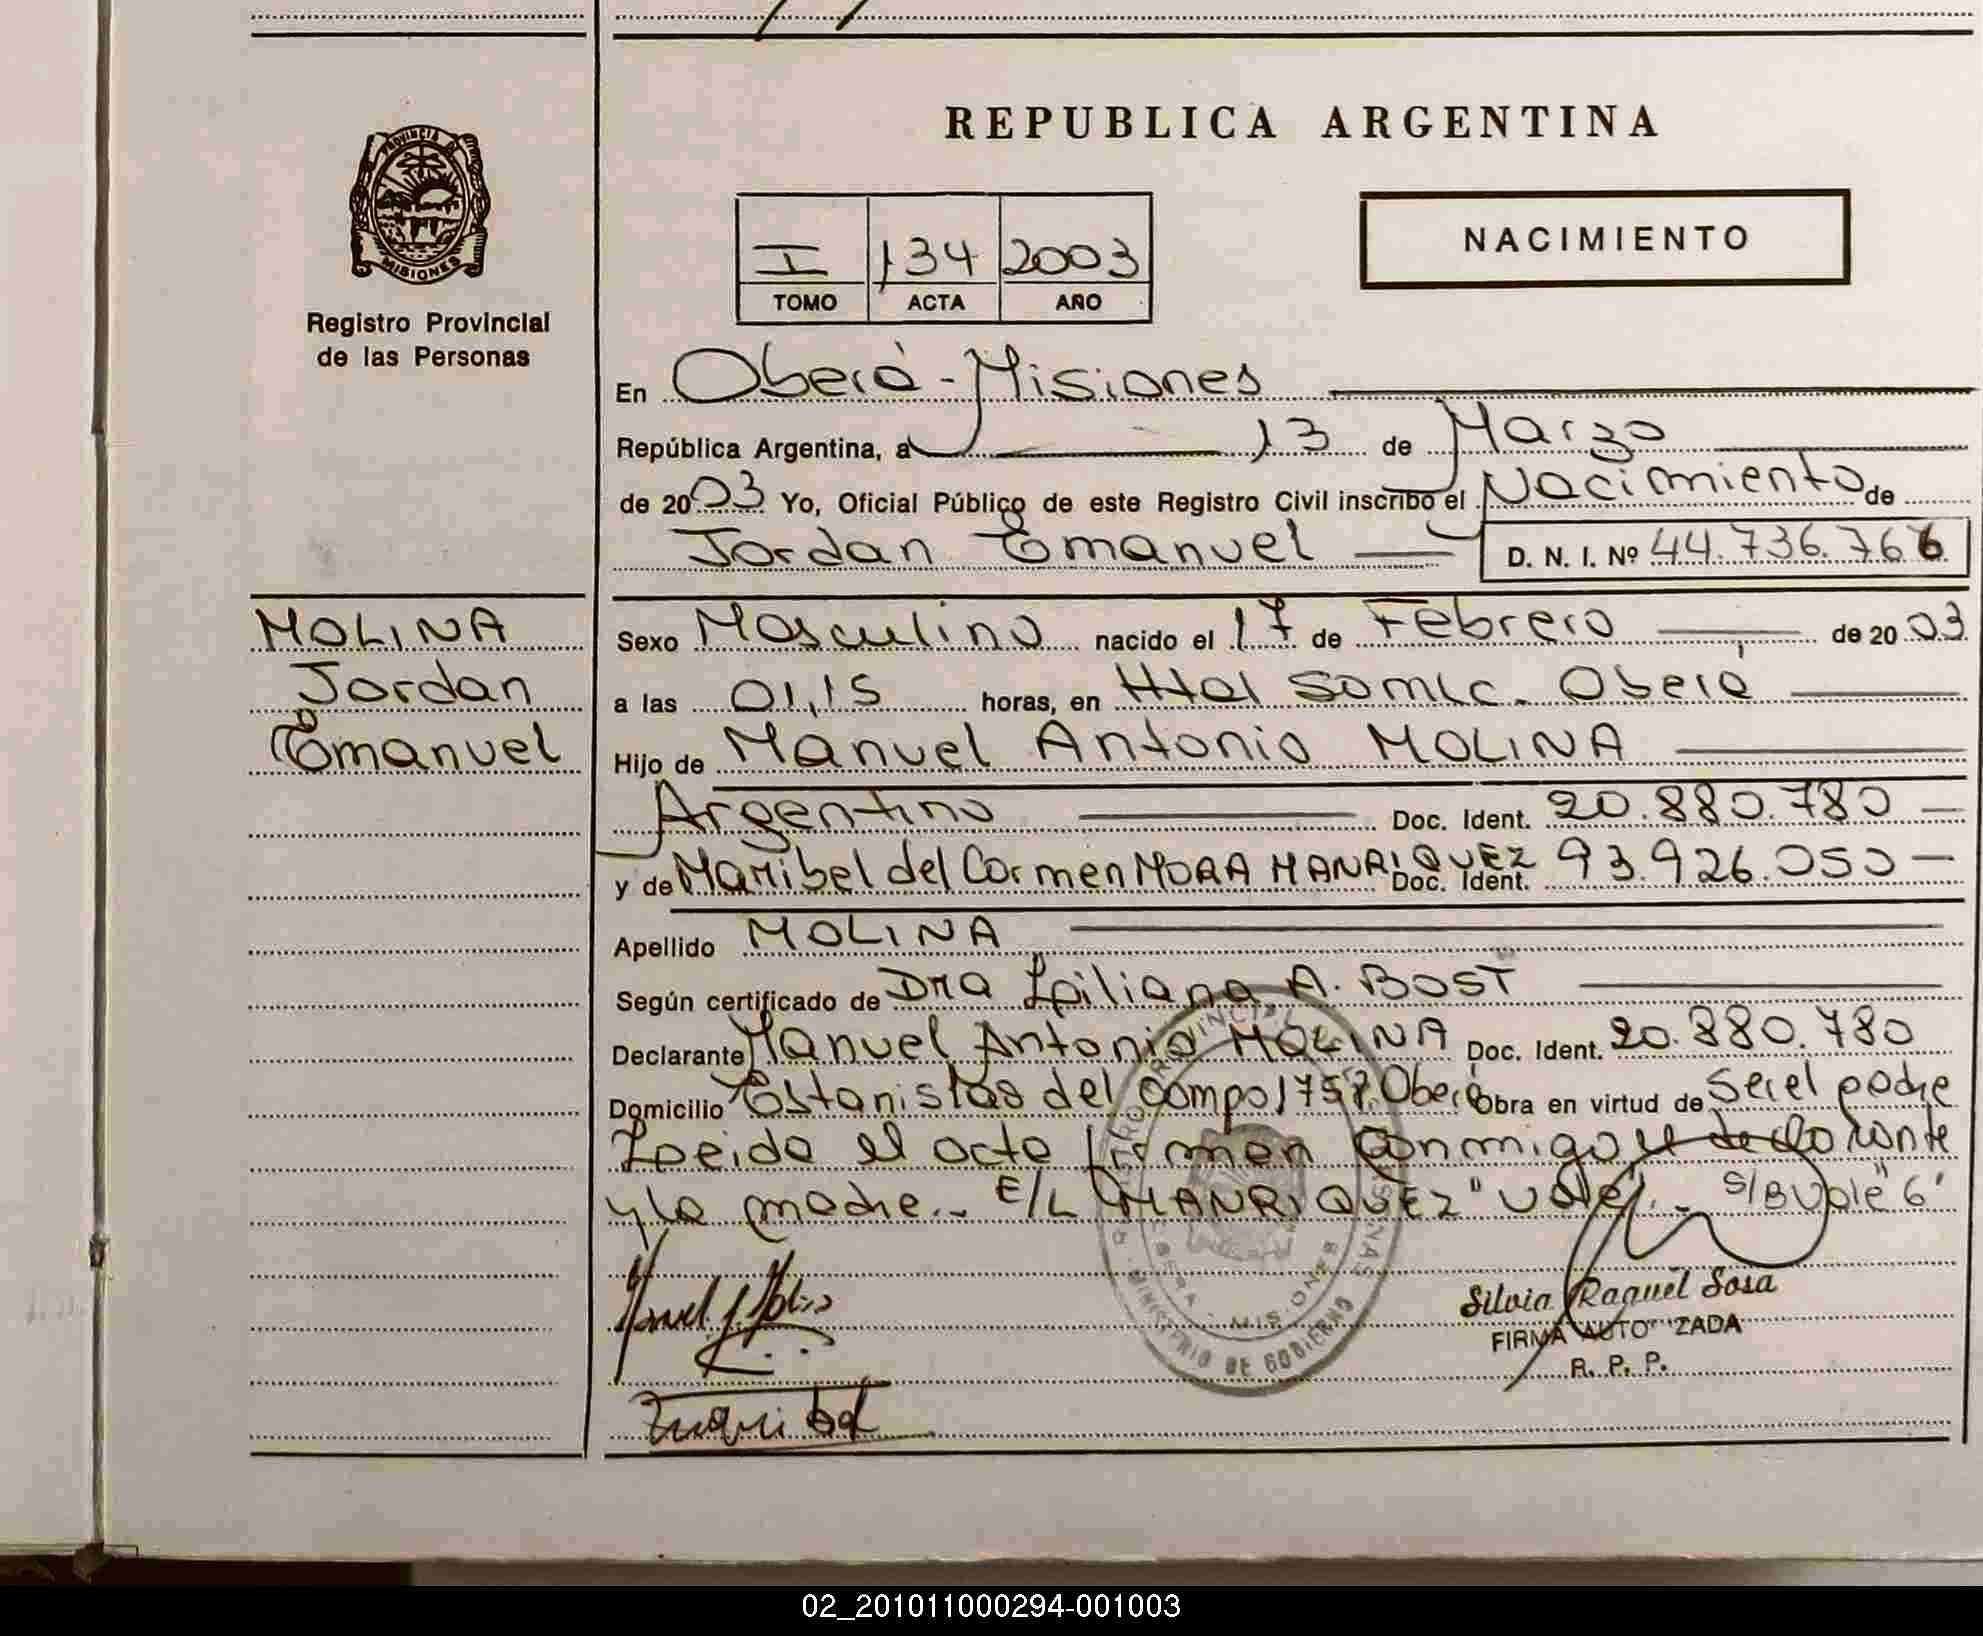 REPUBLICA ARGENTINA
PROVINCIA DE
MISIONES
Registro Provincial
de las Personas
I 134 2003
TOMO ACTA AÑO
NACIMIENTO
En Oberá - Misiones
República Argentina, a 13 de Marzo
de 2003 Yo, Oficial Público de este Registro Civil inscribo el Nacimiento de
Jordan Emanuel D. N. I. Nº 44.736.766
MOLINA
Jordan
Emanuel
Sexo Masculino nacido el 17 de Febrero de 2003
a las 01,15 horas, en Htal Samic. Oberá
Hijo de Manuel Antonio MOLINA
Argentino Doc. Ident. 20.880.780
y de Maribel del Carmen MORA MANRIQUEZ Doc. Ident. 93.926.050
Apellido MOLINA
Según certificado de Dra Liliana A. BOST
Declarante Manuel Antonio MOLINA Doc. Ident. 20.880.780
Domicilio Estanislao del Campo 1757. Oberá Obra en virtud de Ser el padre
Leida el acta firman conmigo el declarante
y la madre.- E/L "MANRIQUEZ" Vale.- S/B Vale "6"
MINISTERIO DE GOBIERNO
Silvia Raquel Sosa
FIRMA AUTO ZADA
R. P. P.
Maribel
02_201011000294-001003